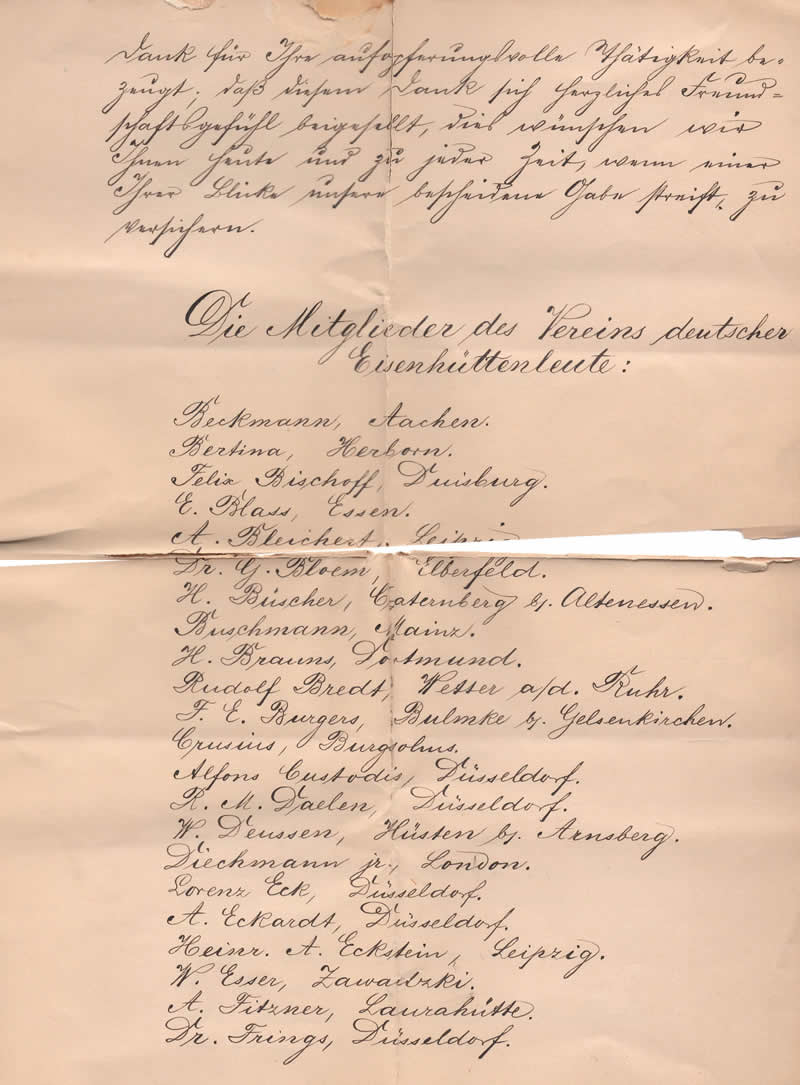 Dank für Ihre aufopferungsvolle Thätigkeit be-
zeugt; daß diesem Dank sich herzliches Freund=
schaftsgefühl beigesellt, dies wünschen wir
Ihnen heute und zu jeder Zeit, wenn einer
Ihrer Blicke unsere bescheidene Gabe streift, zu
versichern.
Die Mitglieder des Vereins deutscher
Eisenhüttenleute:
Beckmann, Aachen.
Bertina, Herborn.
Felix Bischoff, Duisburg.
E. Blass, Essen.
A. Bleichert, Leipzig
Dr. G. Bloem, Elberfeld.
H. Büscher, Caternberg b/. Altenessen.
Buschmann, Mainz.
H. Brauns, Dortmund.
Rudolf Bredt, Wetter a/d. Ruhr.
F. E. Burgers, Bulmke b/. Gelsenkirchen.
Crusius, Burgsolms.
Alfons Custodis, Düsseldorf.
R. M. Daelen, Düsseldorf.
W. Deussen, Hüsten b/. Arnsberg.
Dieckmann jr., London.
Lorenz Eck, Düsseldorf.
A. Eckardt, Düsseldorf.
Heinr. A. Eckstein, Leipzig.
W. Esser, Zawadzki.
A. Fitzner, Laurahütte.
Dr. Frings, Düsseldorf.